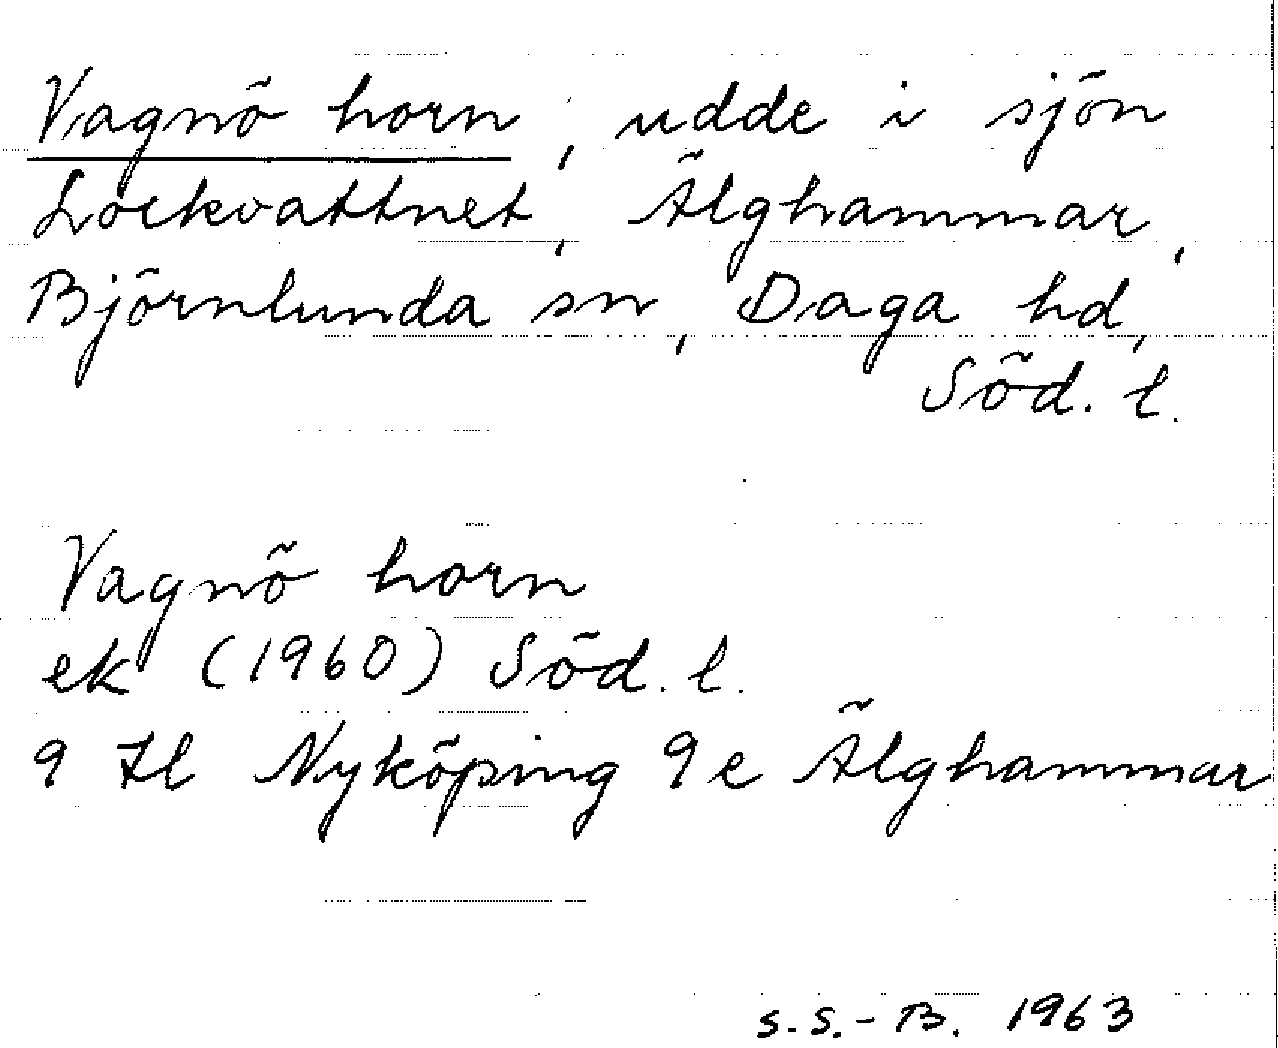 Vagnö horn, udde i sjön
Lockvattnet, Älghammar,
Björnlunda sn, Daga hd,
Söd. l.
Vagnö horn
ek (1960) Söd. l.
9 H Nyköping 9 e Älghammar
S.S.-B. 1963